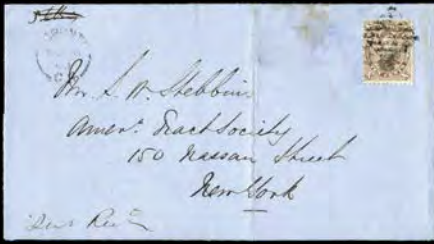 TORONTO
Mr S. W. Stebbins
Amern. Tract Society
150 Nassau Street
New York